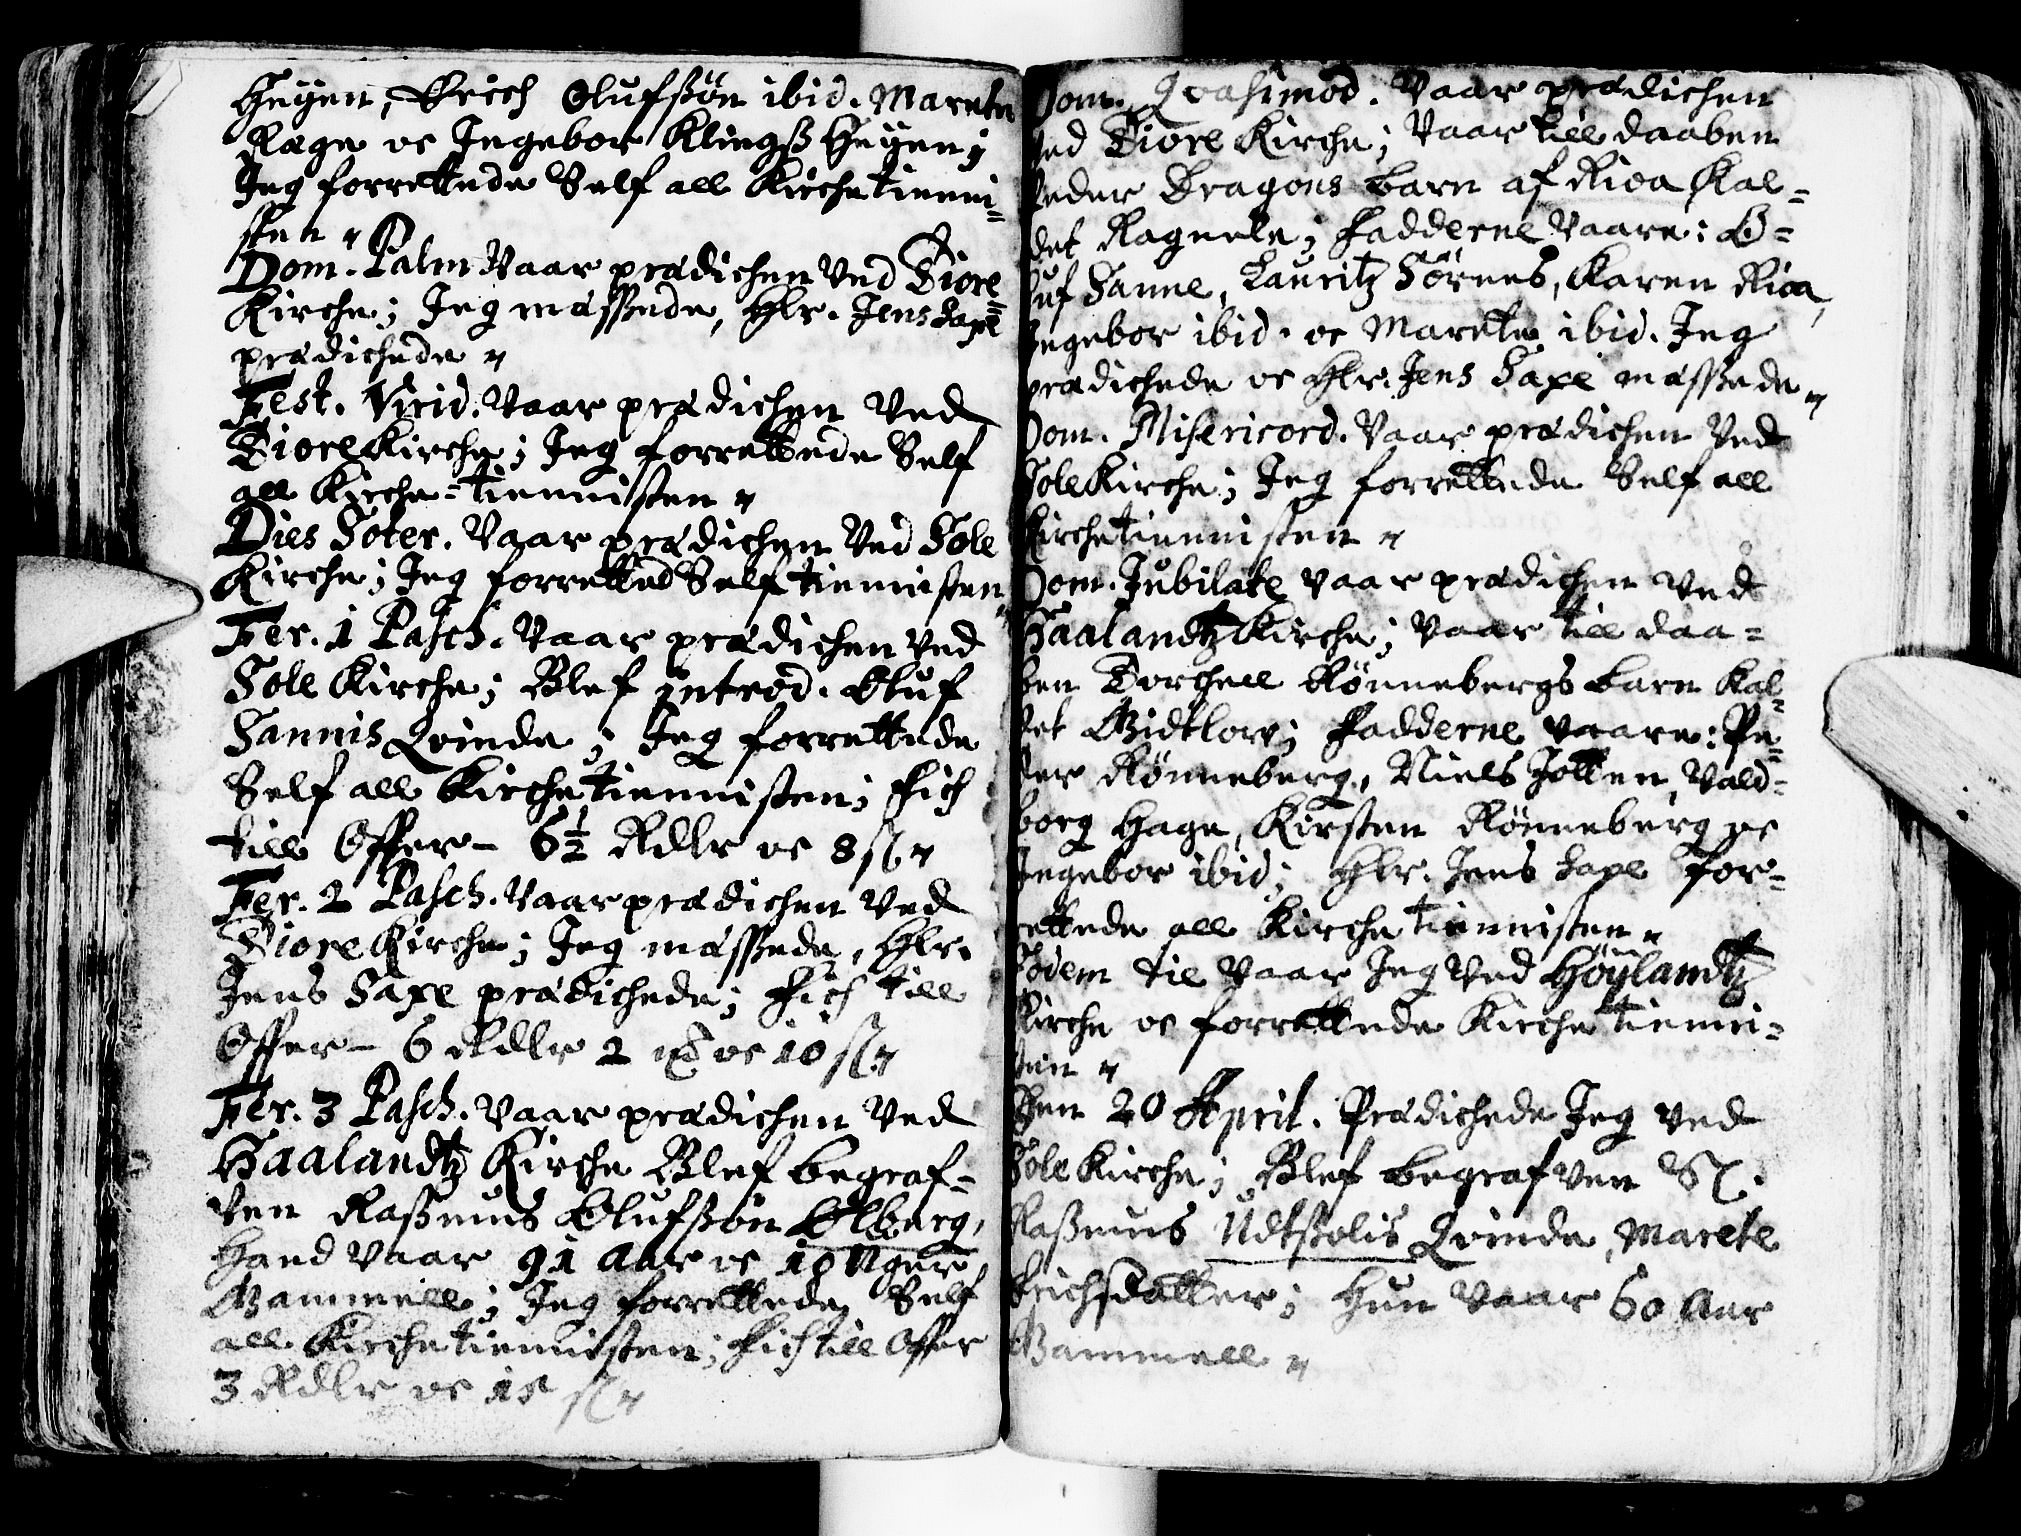 Heyen, Erich Olufsøn ibid. Marete
Rage oc Ingebor Klingß Heyen;
Jeg forrettede Self all Kirchetienni=
sten
Dom. Palm Vaar prædichen Ved Tiore=
Kirche; Jeg maßede, Hlr. Jens Saxe
prædichede
Fest. Virid. Vaar prædichen Ved
Tiore Kirche; Jeg forrettede Self
all Kirche=tiennisten
Dies Soter. Vaar prædichen Ved Sole
Kirche; Jeg forretted Self tiennisten
Fer. 1 Pasch. Vaar prædichen Ved
Sole Kirche; Blef introd. Oluf
Sannis Qvinde; Jeg forrettede
Self all Kirchetiennisten; Fich
till Offer - 6½ Rdlr oc 8 sl
Fer. 2 Pasch. Vaar prædichen Ved
Tiore Kirche; Jeg maßede, Hlr.
Jens Saxe prædichede; Fich till
Offer - 6 Rdlr 2 mk oc 10 sl
Fer. 3 Pasch. Vaar prædichen Ved
Haalandtz Kirche Blef begraf=
ven Raßmus Olufsøn Ølberg,
Hand Vaar 91 Aar oc 10 Uger
Gammell; Jeg forrettede Self
all Kirchetiennisten; Fich till Offer
3 Rdlr oc 15 sl
Dom. Qvasimod. Vaar prædichen
Ved Tiore Kirche; Vaar till daaben
Peder Dragons barn af Rioa Kal=
det Ragnele; Fadderne Vaare: O=
luf Sanne, Lauritz Sørnes, Karen Rioa,
Ingebor ibid. oc Marete ibid. Jeg
prædichede oc Hlr. Jens Saxe maßede
Dom. Misericord. Vaar prædichen Ved
Sole Kirche; Jeg forrettede Self all
Kirchetiennisten
Dom. Jubilate Vaar prædichen Ved
Haalandtz Kirche; Vaar till daa=
ben Torchell Rønnebergs barn Kal=
det Gidtlov; Fadderne Vaare: Pe=
der Rønneberg, Niels Jotten, Vald=
borg Hage, Kirsten Rønneberg oc
Ingebor ibid; Hlr. Jens Saxe for=
rettede all Kirchetiennisten
Sødem tie Vaar Jeg Ved Høylandtz
Kirche oc forrettede Kirchetienni=
sten
Den 20 April. Prædichede Jeg Ved
Sole Kirche; Blef begrafven Sl.
Raßmus Udtsolis Qvinde, Marete
Erichsdatter; Hun Vaar 60 Aar
Gammell